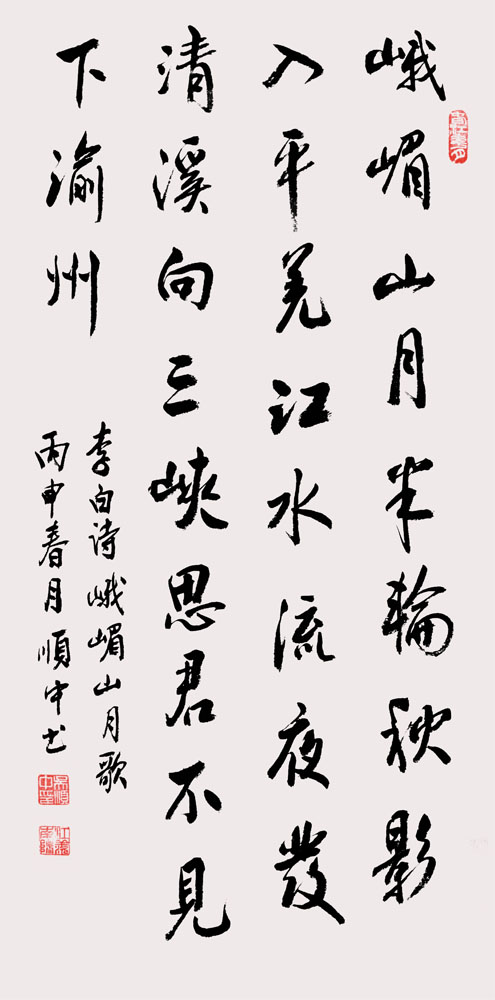 峨嵋山月半輪秋影
入平羌江水流夜發
清溪向三峽思君不見
下渝州
李白诗峨嵋山月歌
丙申春月順中书